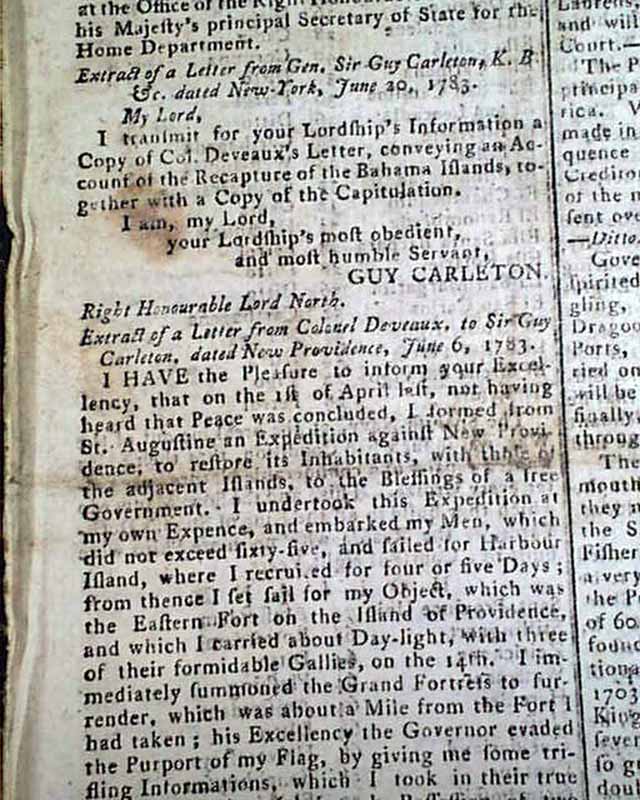 at the Office of the Right
his Majeſty's principal Secretary of State for the
Home Department.
Extract of a Letter from Gen. Sir Guy Carleton, K. B
&c. dated New-York, June 20, 1783.
My Lord,
I tranſmit for your Lordſhip's Information a
Copy of Col. Deveaux's Letter, conveying an Ac-
count of the Recapture of the Bahama Iſlands, to-
gether with a Copy of the Capitulation.
I am, my Lord,
your Lordſhip's moſt obedient,
and moſt humble Servant,
GUY CARLETON.
Right Honourable Lord North.
Extract of a Letter from Colonel Deveaux, to Sir Guy
Carleton, dated New Providence, June 6, 1783.
I HAVE the Pleaſure to inform your Excel-
lency, that on the 1ſt of April laſt, not having
heard that Peace was concluded, I formed from
St. Auguſtine an Expedition againſt New Provi-
dence, to reſtore its Inhabitants, with thoſe of
the adjacent Iſlands, to the Bleſſings of a free
Government. I undertook this Expedition at
my own Expence, and embarked my Men, which
did not exceed ſixty-five, and ſailed for Harbour
Iſland, where I recruited for four or five Days;
from thence I ſet ſail for my Object, which was
the Eaſtern Fort on the Iſland of Providence,
and which I carried about Day-light, with three
of their formidable Gallies, on the 14th. I im-
mediately ſummoned the Grand Fortreſs to ſur-
render, which was about a Mile from the Fort I
had taken; his Excellency the Governor evaded
the Purport of my Flag, by giving me ſome tri-
fling Informations, which I took in their true
and will b
Court.—
The P
principa
rica. W
made in
quence
Credito
of the n
ſent ove
—Ditto.
Gove
ſpirited
gling,
Dragoo
Ports,
ried on
will be
finally,
throug
The
mouth
they m
the S
Fiſher
a very
the P
of 60
found
tiona
1703
King
ſever
ſo g
dou